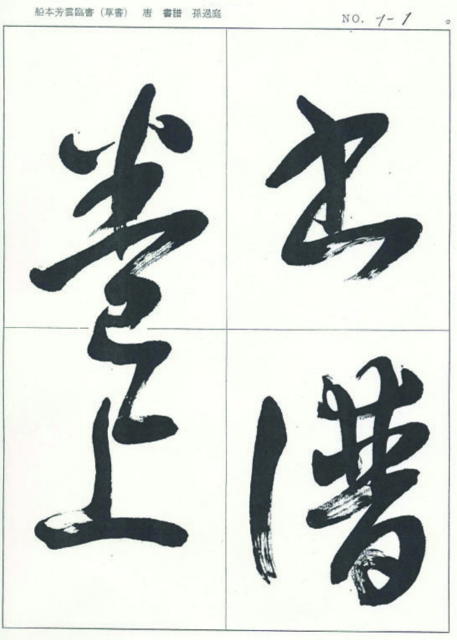 船本芳雲臨書（草書） 唐 書譜 孫過庭
NO. 1-1
書譜
卷上